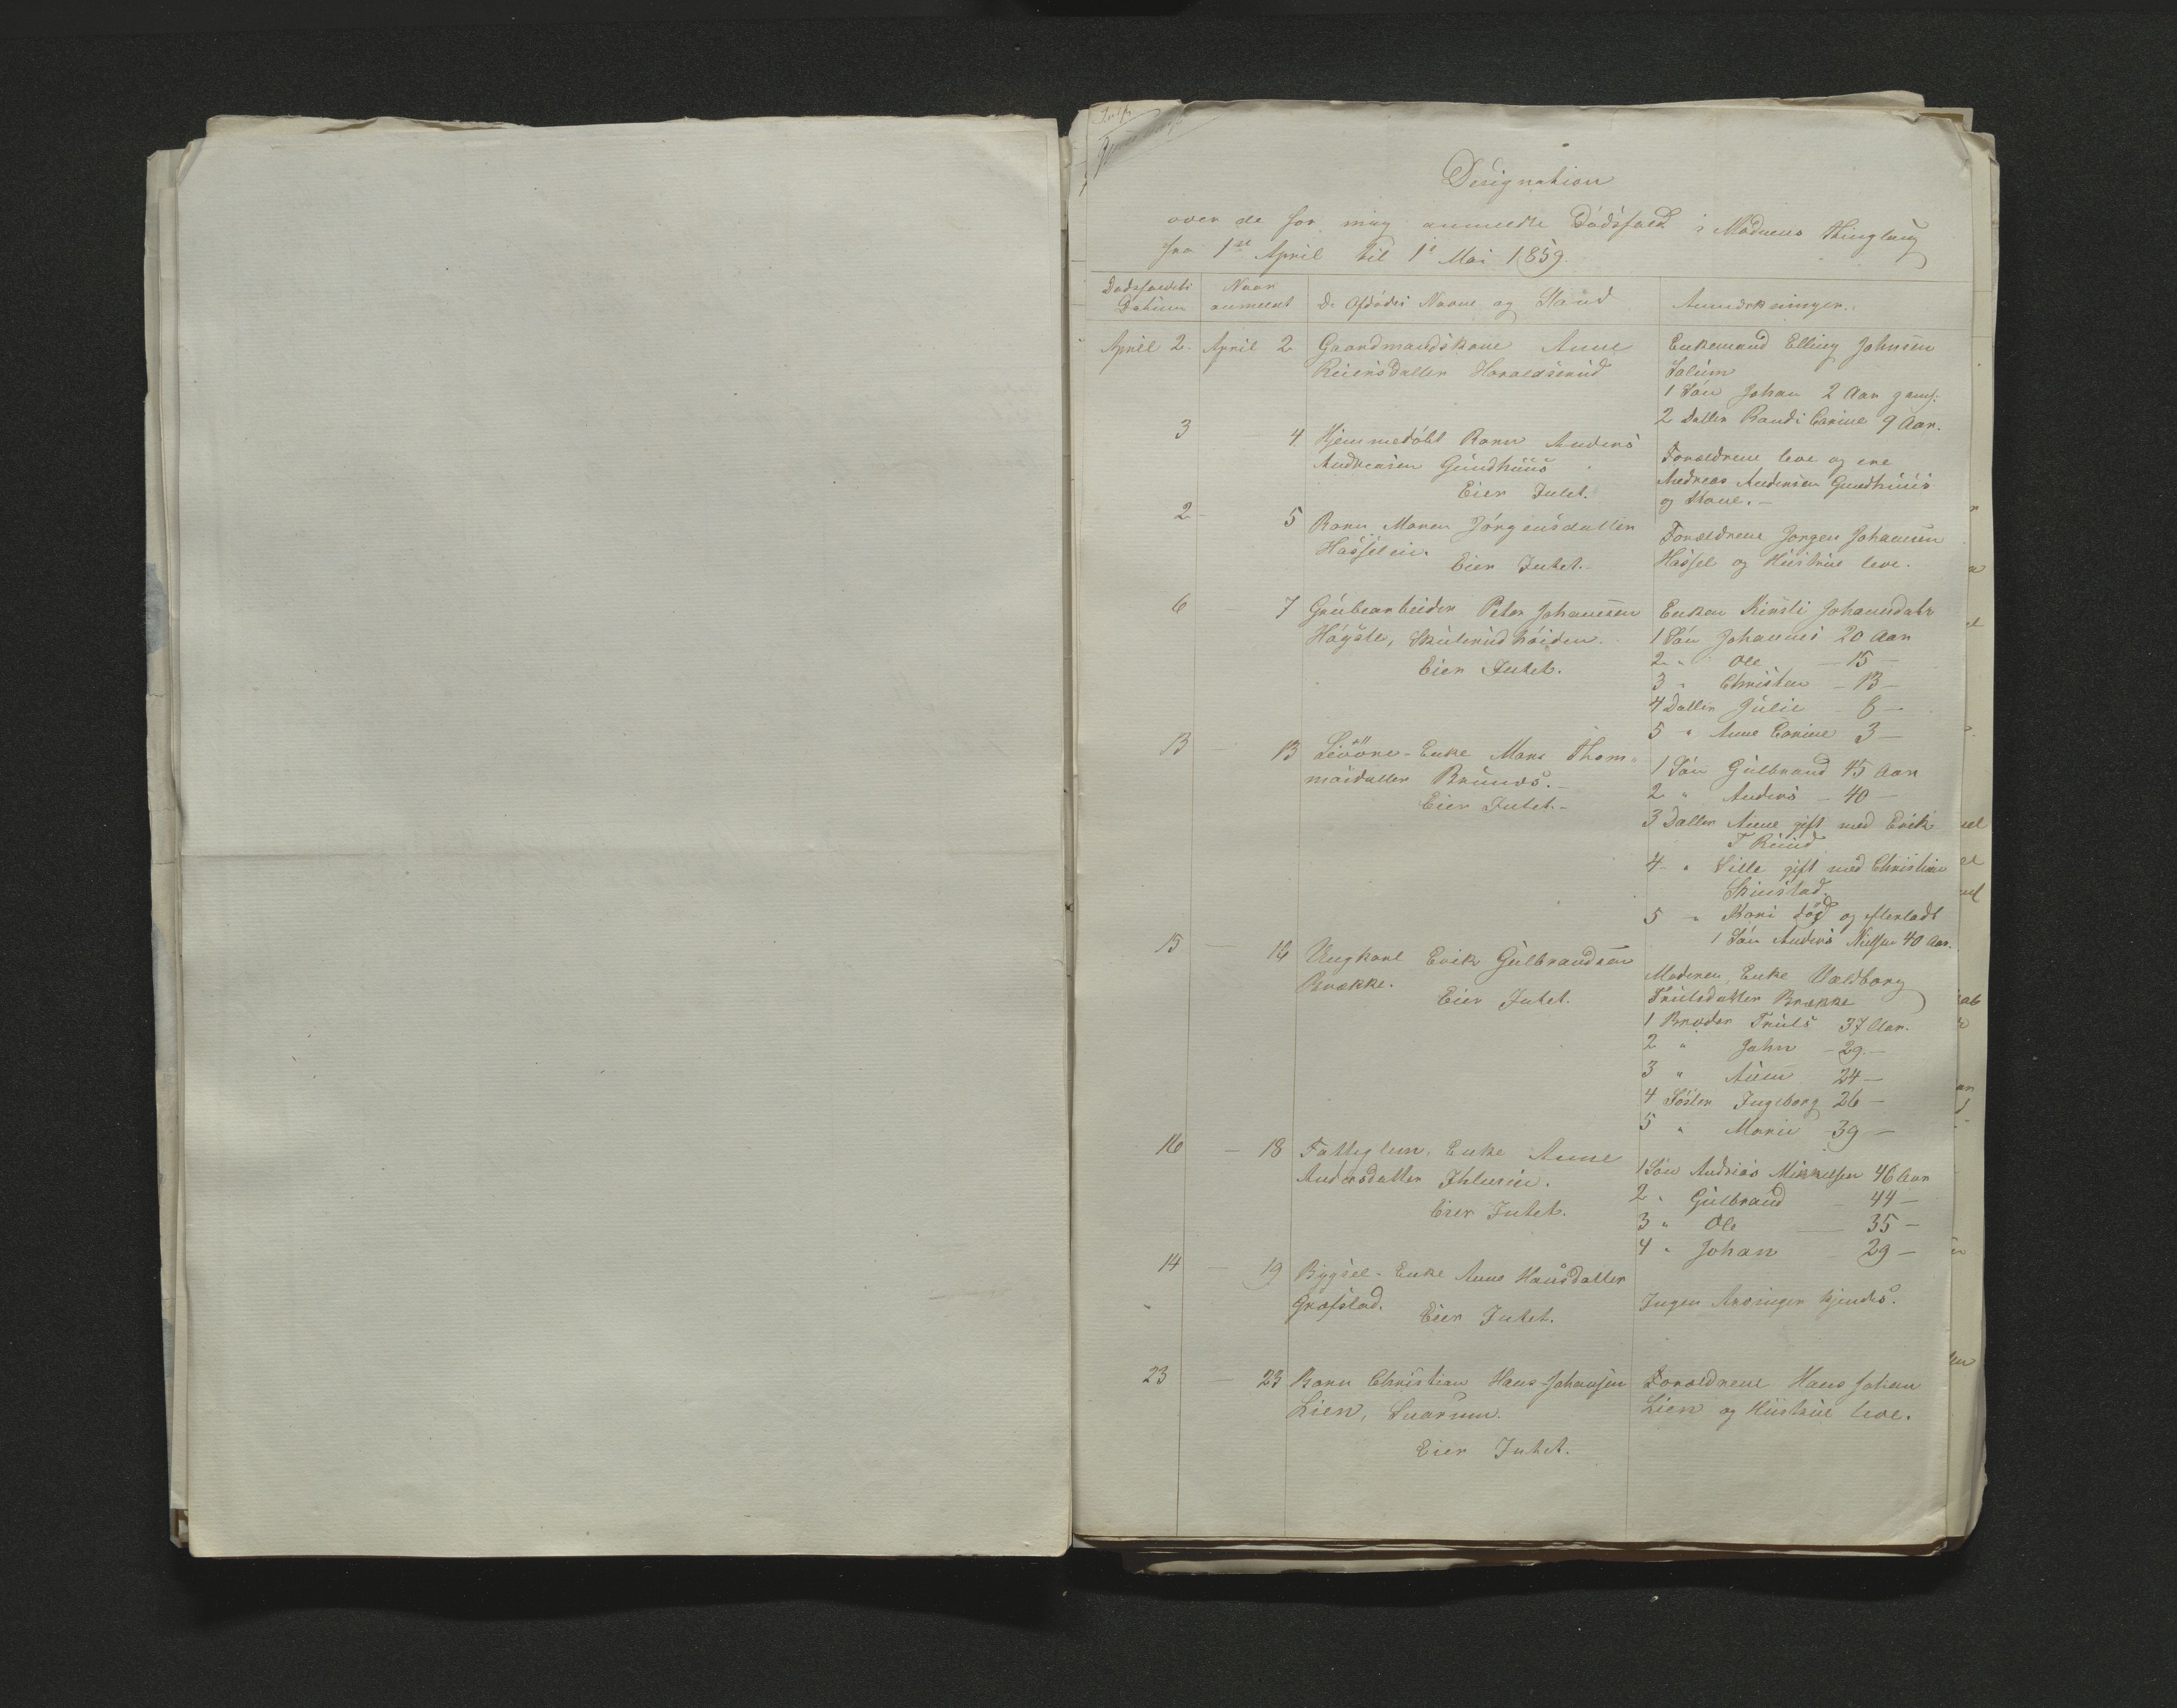 Designation
over de for mig anmeldte Dødsfald i Modums Thinglaug
fra 1ste April til 1ste Mai 1859.
Dødsfaldets Datum
Naar anmeldt
De Afdødes Navne og Stand
Anmærkninger.
April 2. April 2 Gaardmandskone Anne
Reiersdatter Haraldsrud
Enkemand Elling Johnsen
Solum
1 Søn Johan 2 Aar gaml:
2 Datter Randi Carine 9 Aar.
3 — 4 Hjemmedøbt Barn Anders
Andreasen Gundhuus
Eier Intet.
Forældrene leve og ere
Andreas Andersen Gundhuus
og Kone. —
2 — 5 Barn Maren Jørgensdatter
Hasseleie.
Eier Intet.
Forældrene Jørgen Johansen
Hassel og Hustrue leve.
6 7 Grubearbeider Peter Johannesen
Høgste, Skuterudhøiden.
Eier Intet.
Enken Kirsti Johannsdatr
1 Søn Johannes 20 Aar
2 " Ole — 15 —
3 " Christen — 13 —
4 Datter Julie — 8 —
5 " Anne Carine 3 —
13 — 13 Enke Mari Thom-
masdatter
Eier Intet. —
1 Søn Gulbrand 45 Aar
2 " Anders — 40 —
3 Datter Anne gift med Erik
T Ruud
4 " Sille gift med Christian
Skinstad
5 " Kari død og efterladt
1 Søn Anders Nielsen 40 Aar.
15 — 16 Ungkarl Erik Gulbrandsen
Brække.
Eier Intet.
Moderen, Enke Valdborg
Trulsdatter Brække
1 Broder Truls 37 Aar.
2 " John — 29 —
3 " 24 —
4 Søster Ingeborg 26 —
5 " Marie 39 —
16 — 18 Fattiglem, Enke Anne
Andersdatter Ihleeie.
Eier Intet.
1 Søn Andreas Mikkelsen 46 Aar
2 " Gulbrand — 44 —
3 " Ole — 35 —
4 " Johan — 29 —
14 — 19 Bygsel-Enke Anne Hansdatter
Grøfstad.
Eier Intet.
Ingen Arvinger kjendes.
23 — 23 Barn Christian Hans Johansen
Lien, Snarum.
Eier Intet.
Forældrene Hans Johan
Lien og Hustrue leve.